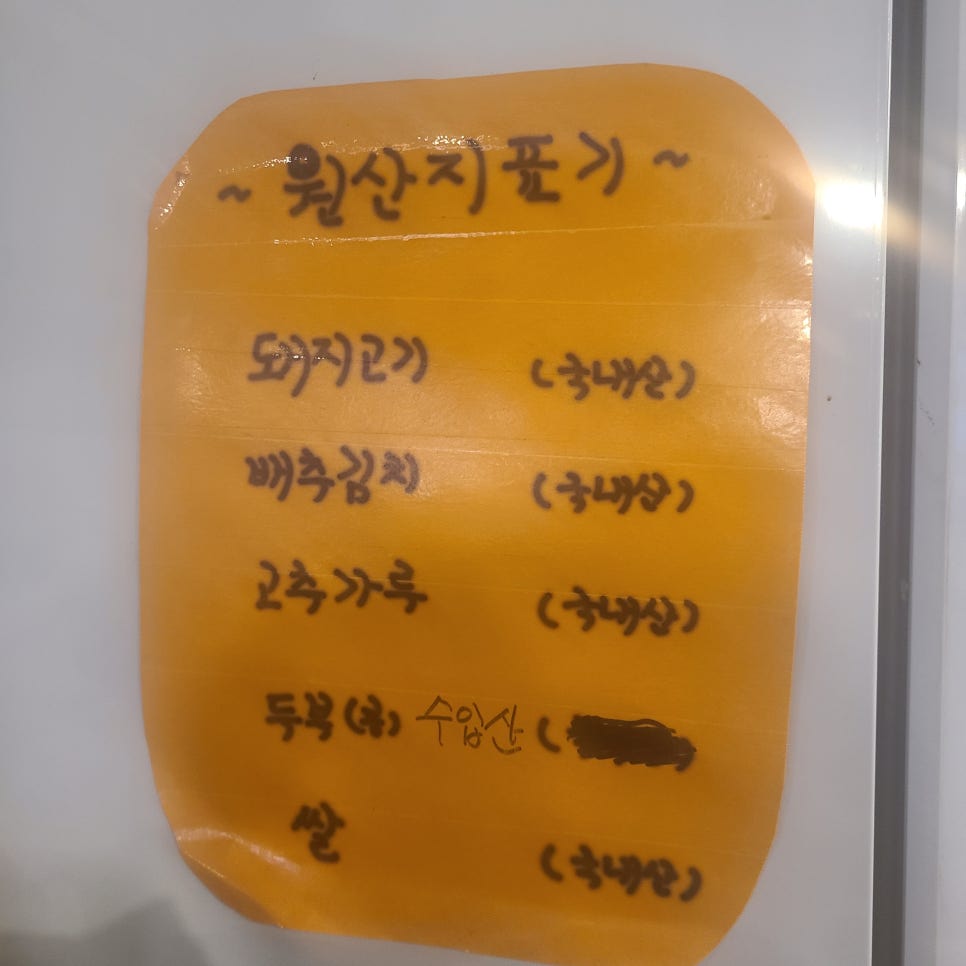 ~ 원산지 표기 ~
돼지고기 (국내산)
배추김치 (국내산)
고추가루 (국내산)
두부(콩) 수입산 (
쌀 (국내산)